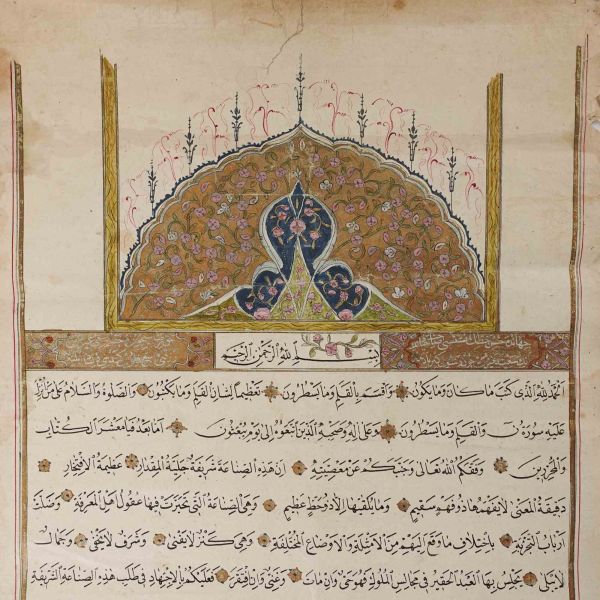 بسم الله الرحمن الرحيم
الحمد لله الذي كتب ما كان وما يكون واقسم بالقلم وما يسطرون تعظيما لشان القلم وما يكتبون والصلوة والسلام على من انزل
عليه سورة ن والقلم وما يسطرون وعلى اله وصحبه الذين اتبعوه الى يوم يبعثون اما بعد فيا معشر الكتاب
والمحررين وفقكم الله تعالى وجنبكم عن معصيته ان هذه الصناعة شريفة جليلة المقدار عظيمة الافتخار
دقيقة المعنى لا يفهمها ذو فهم سقيم وما يلقيها الا ذو حظ عظيم وهي الصناعة التي تحيرت فيها عقول اهل المعرفة وضلت
ارباب التجربة باختلاف ما وقع اليهم من الامثلة والاوضاع المختلفة وهي كنز لا يفنى وشرف لا يخفى وجمال
لا يبلى يجلس بها العبد الحقير في مجالس الملوك فهو حي وان مات وغني وان افتقر فعليكم بالاجتهاد في طلب هذه الصناعة الشريفة